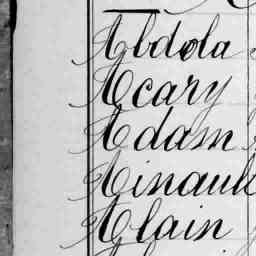 Abdola
Acary
Adam
Ainault
Alain